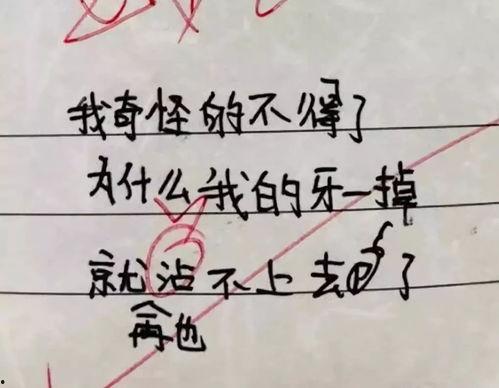 我奇怪的不得了
为什么我的牙一掉
就沾不上去了
再也